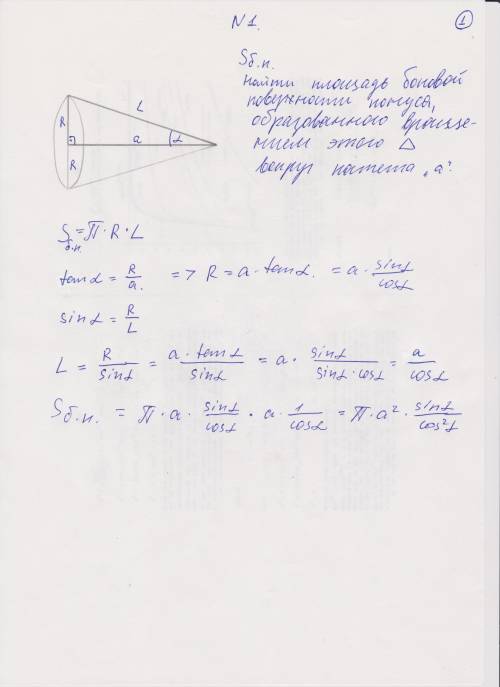 N 1.
1
Sб.п.
найти площадь боковой
поверхности конуса,
образованного враще-
нием этого △
вокруг катета „a”.
L
R
a
α
R
Sб.п. = π · R · L
tanα = R/a. => R = a · tanα. = a · sinα/cosα
sinα = R/L
L = R/sinα = a · tanα/sinα = a · sinα/sinα · cosα = a/cosα
Sб.п. = π · a · sinα/cosα · a · 1/cosα = π · a² · sinα/cos²α